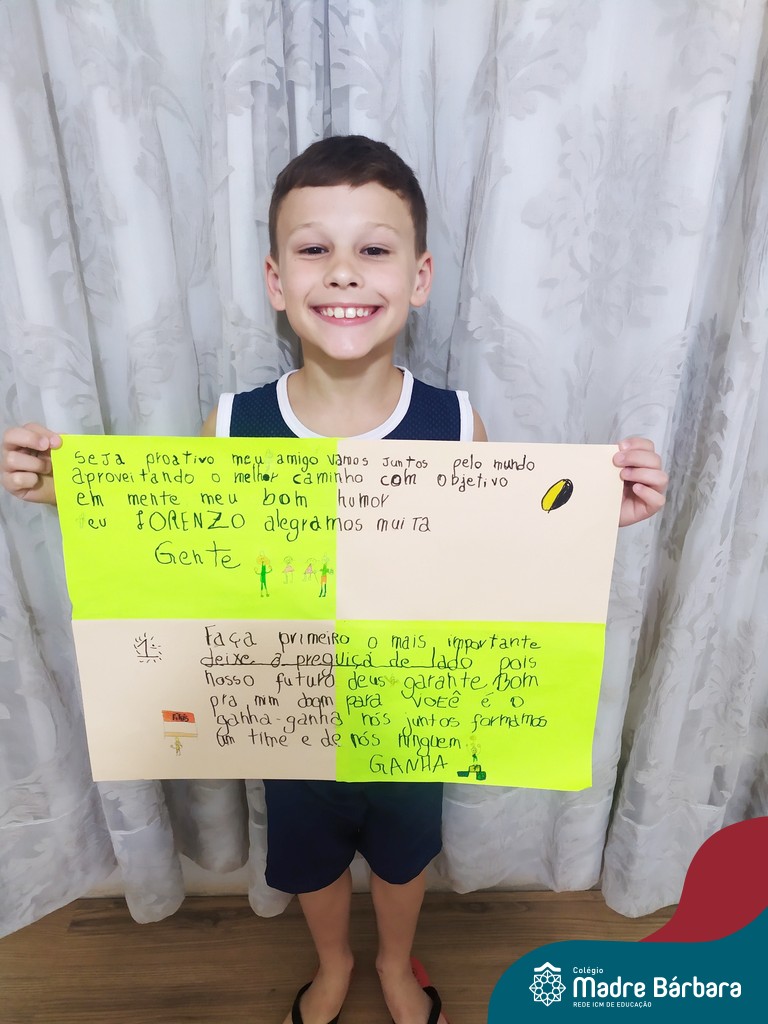 Seja proativo meu amigo vamos juntos pelo mundo
aproveitando o melhor caminho com objetivo
em mente meu bom humor
eu LORENZO alegramos muita
Gente
1º
Faça primeiro o mais importante
deixe a preguiça de lado pois
nosso futuro deus garante, Bom
pra mim bom para VOCÊ é o
ganha-ganha nós juntos formamos
um time e de nós ninguem
GANHA
Colégio
Madre Bárbara
REDE ICM DE EDUCAÇÃO